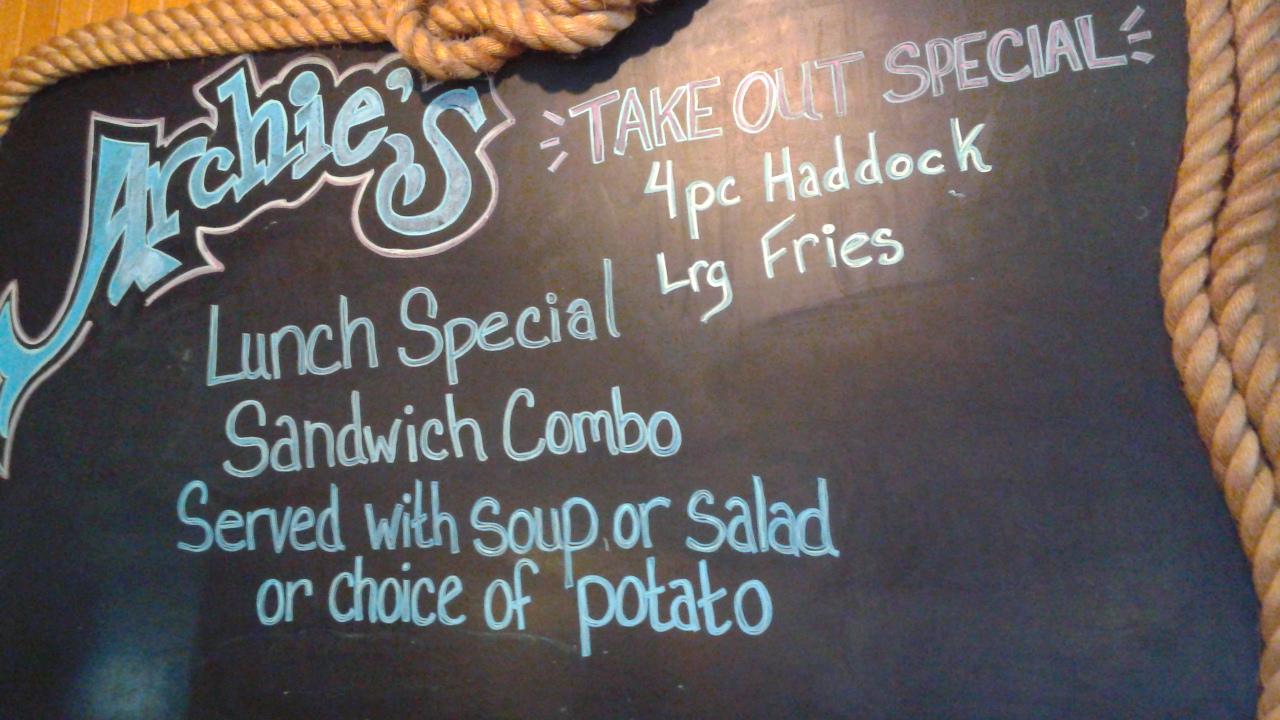 Archie's
TAKE OUT SPECIAL
4pc Haddock
Lrg Fries
Lunch Special
Sandwich Combo
Served with soup, or salad
or choice of potato